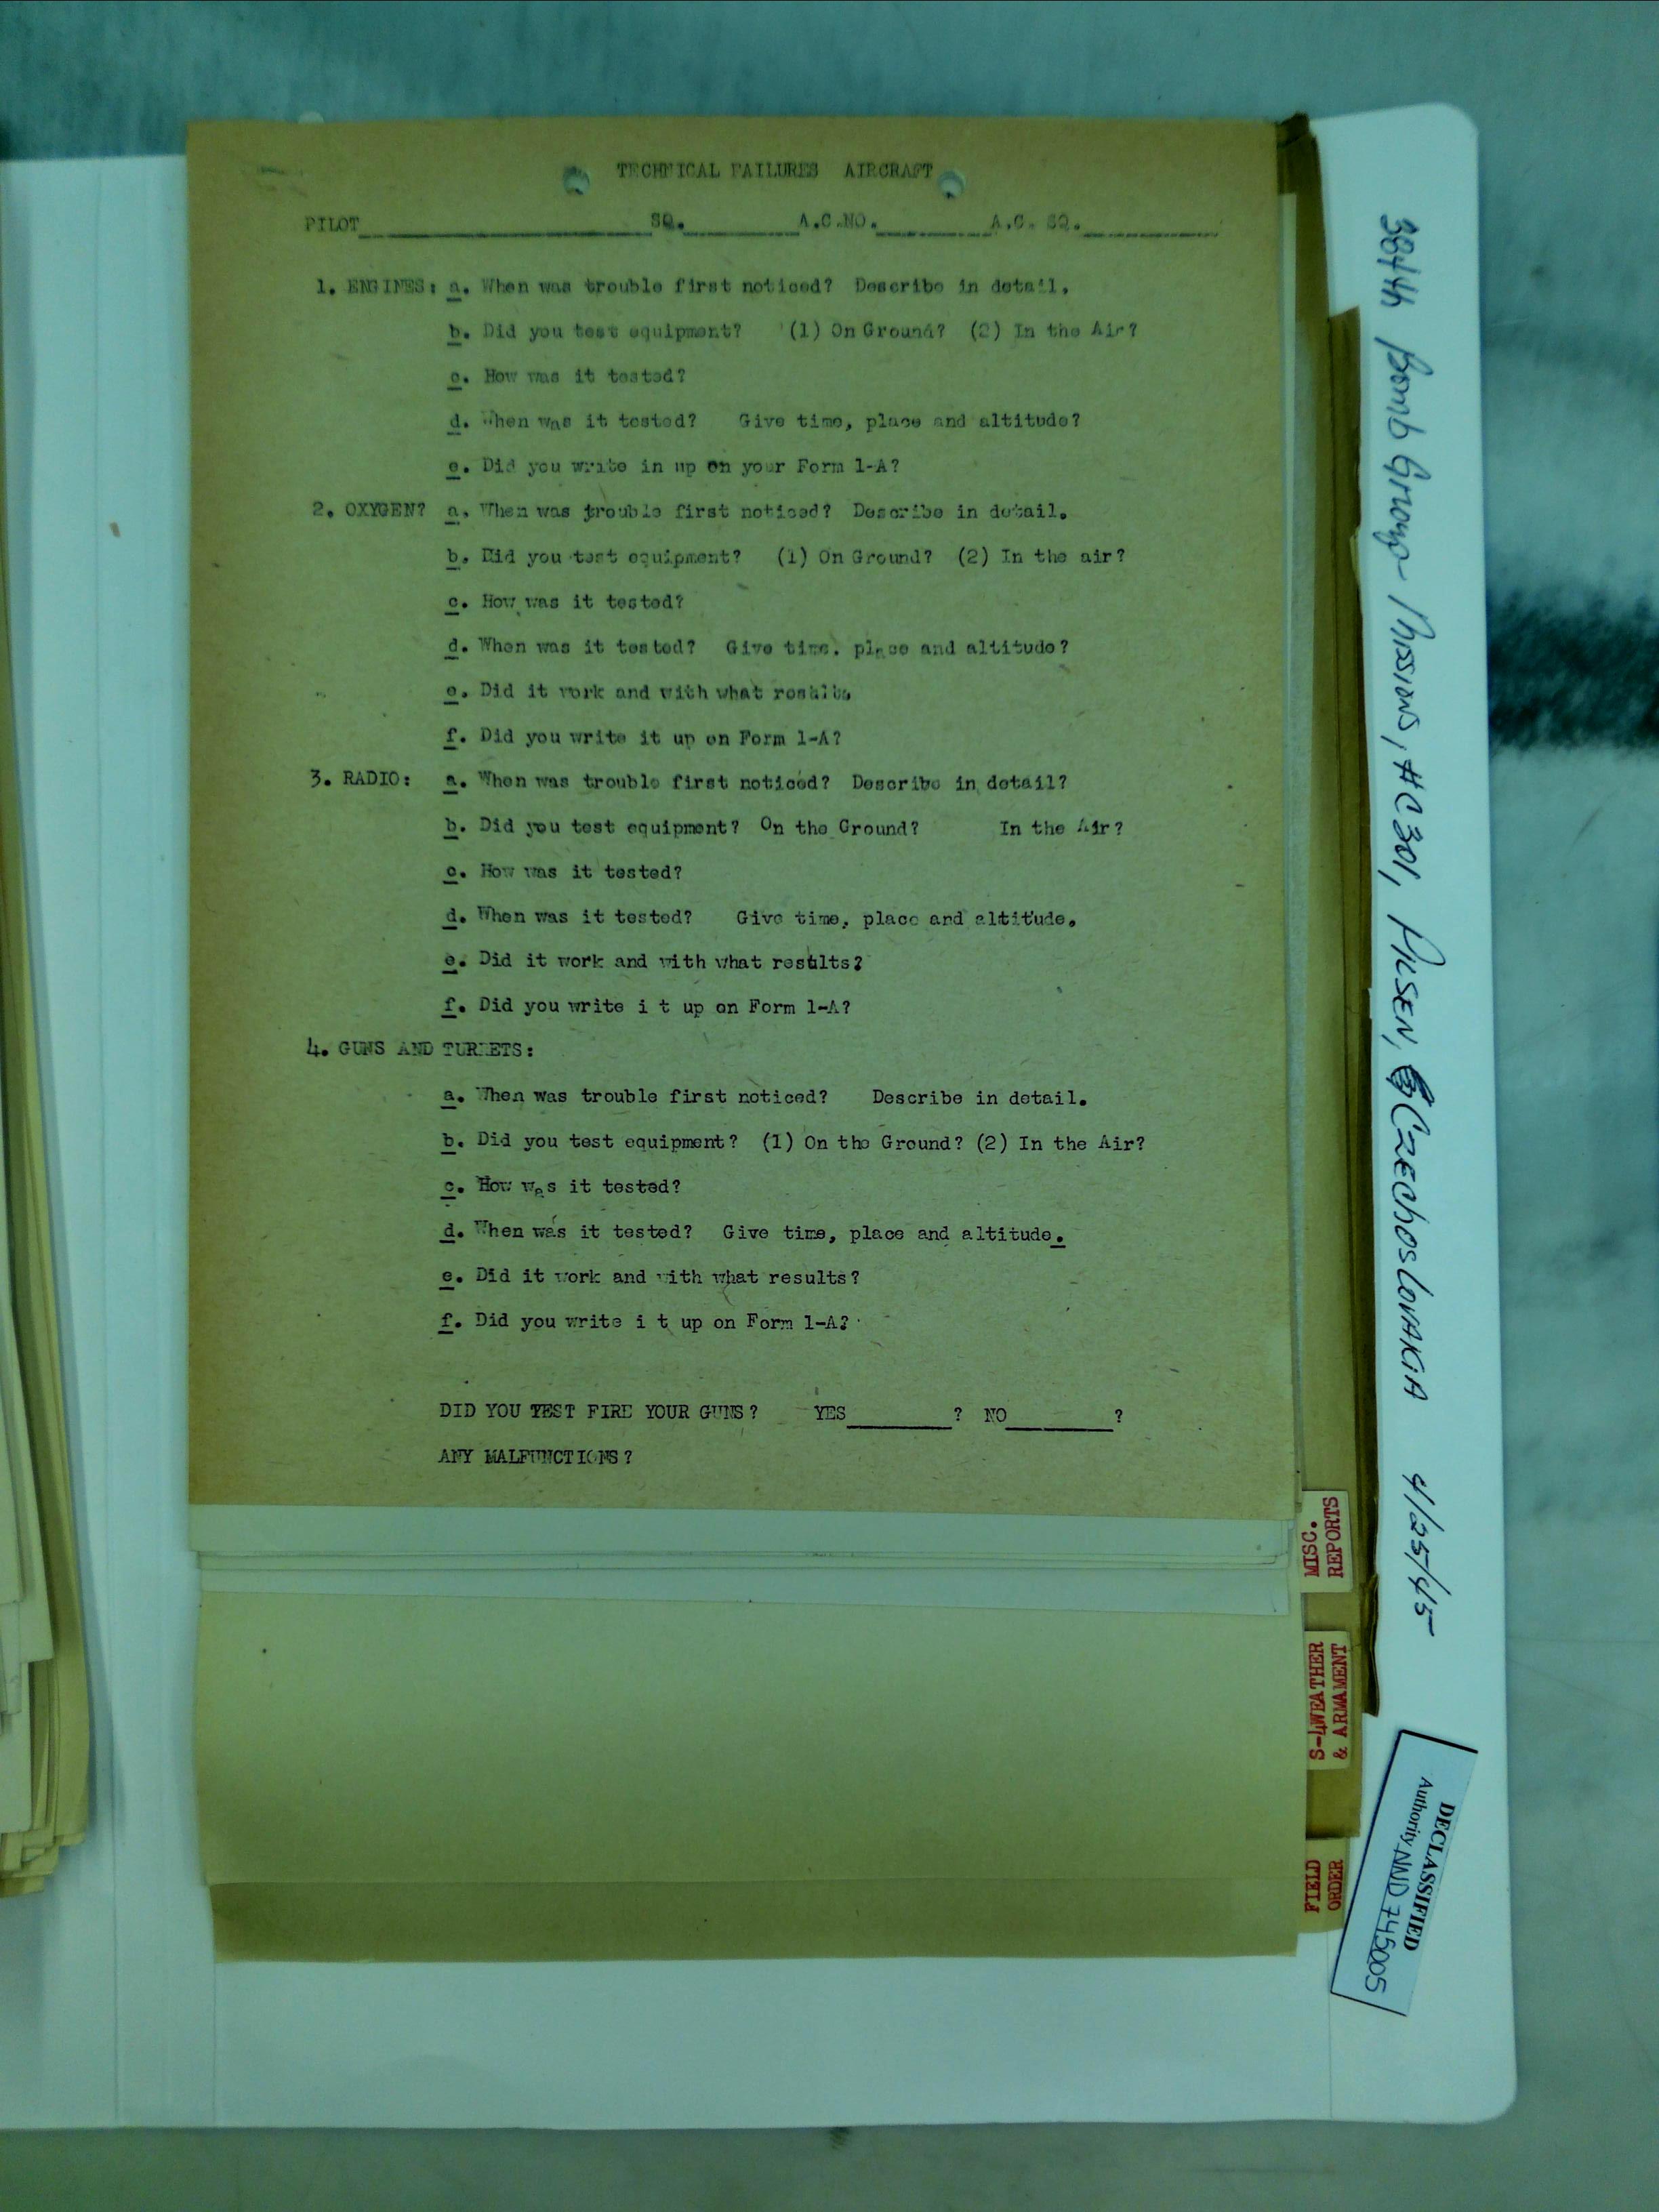 TECHNICAL FAILURES AIRCRAFT
PILOT____________ SQ.________ A.C.NO.________ A.C. SQ.________
1. ENGINES: a. When was trouble first noticed? Describe in detail.
b. Did you test equipment? (1) On Ground? (2) In the Air?
c. How was it tested?
d. When was it tested? Give time, place and altitude?
e. Did you write in up on your Form 1-A?
2. OXYGEN? a. When was trouble first noticed? Describe in detail.
b. Did you test equipment? (1) On Ground? (2) In the air?
c. How was it tested?
d. When was it tested? Give time. place and altitude?
e. Did it work and with what results
f. Did you write it up on Form 1-A?
3. RADIO: a. When was trouble first noticed? Describe in detail?
b. Did you test equipment? On the Ground? In the Air?
c. How was it tested?
d. When was it tested? Give time, place and altitude.
e. Did it work and with what results?
f. Did you write i t up on Form 1-A?
4. GUNS AND TURRETS:
a. When was trouble first noticed? Describe in detail.
b. Did you test equipment? (1) On the Ground? (2) In the Air?
c. How was it tested?
d. When was it tested? Give time, place and altitude.
e. Did it work and with what results?
f. Did you write i t up on Form 1-A?
DID YOU TEST FIRE YOUR GUNS? YES________? NO________?
ANY MALFUNCTIONS?
MISC.
REPORTS
S-4 WEATHER
& ARMAMENT
FIELD
ORDER
384th Bomb Group - Missions, #C301, PILSEN, CZEChOSlOVAKiA 4/25/45
DECLASSIFIED
Authority NND 745005